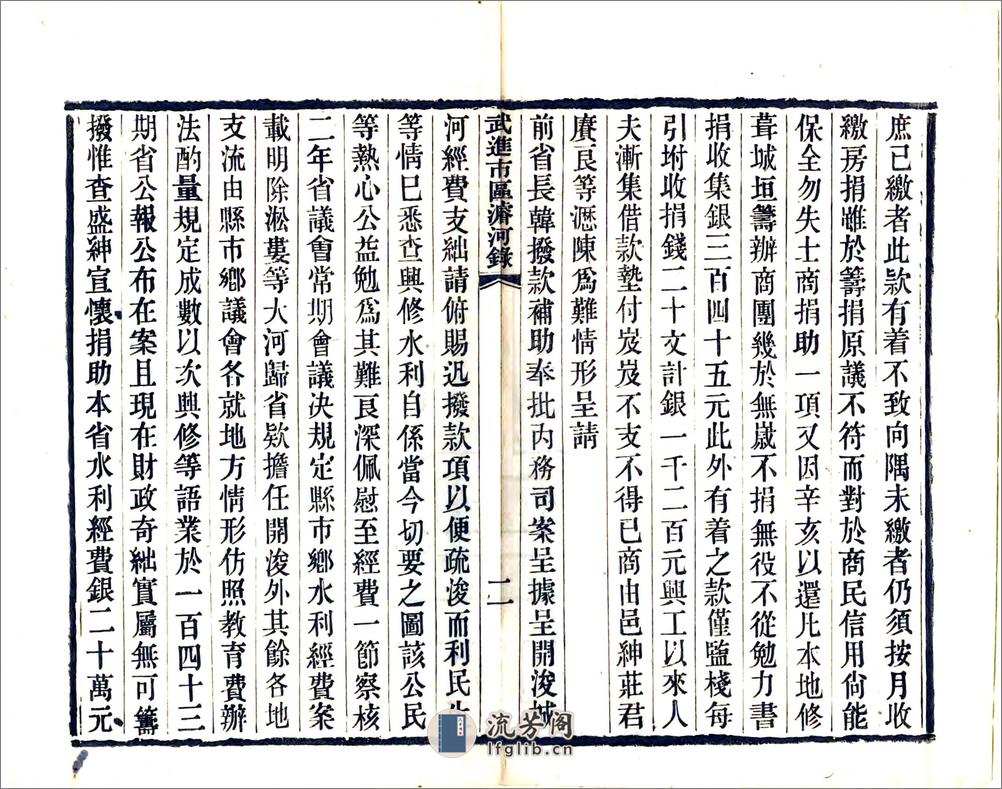 庶已繳者此款有着不致向隅未繳者仍須按月收
繳房捐雖於籌捐原議不符而對於商民信用尙能
保全勿失士商捐助一項又因辛亥以還凡本地修
葺城垣籌辦商團幾於無歲不捐無役不從勉力書
捐收集銀三百四十五元此外有着之款僅鹽棧每
引坿收捐錢二十文計銀一千二百元興工以來人
夫漸集借款墊付岌岌不支不得已商由邑紳莊君
賡良等瀝陳爲難情形呈請
前省長韓撥款補助奉批內務司案呈據呈開浚城
武進市區濬河錄
二
河經費支絀請俯賜迅撥款項以便疏浚而利民生
等情已悉查興修水利自係當今切要之圖該公民
等熱心公益勉爲其難良深佩慰至經費一節察核
二年省議會常期會議決規定縣市鄉水利經費案
載明除淞婁等大河歸省欵擔任開浚外其餘各地
支流由縣市鄉議會各就地方情形仿照教育費辦
法酌量規定成數以次興修等語業於一百四十三
期省公報公布在案且現在財政奇絀實屬無可籌
撥惟查盛紳宣懷捐助本省水利經費銀二十萬元
流芳閣
lfglib.cn